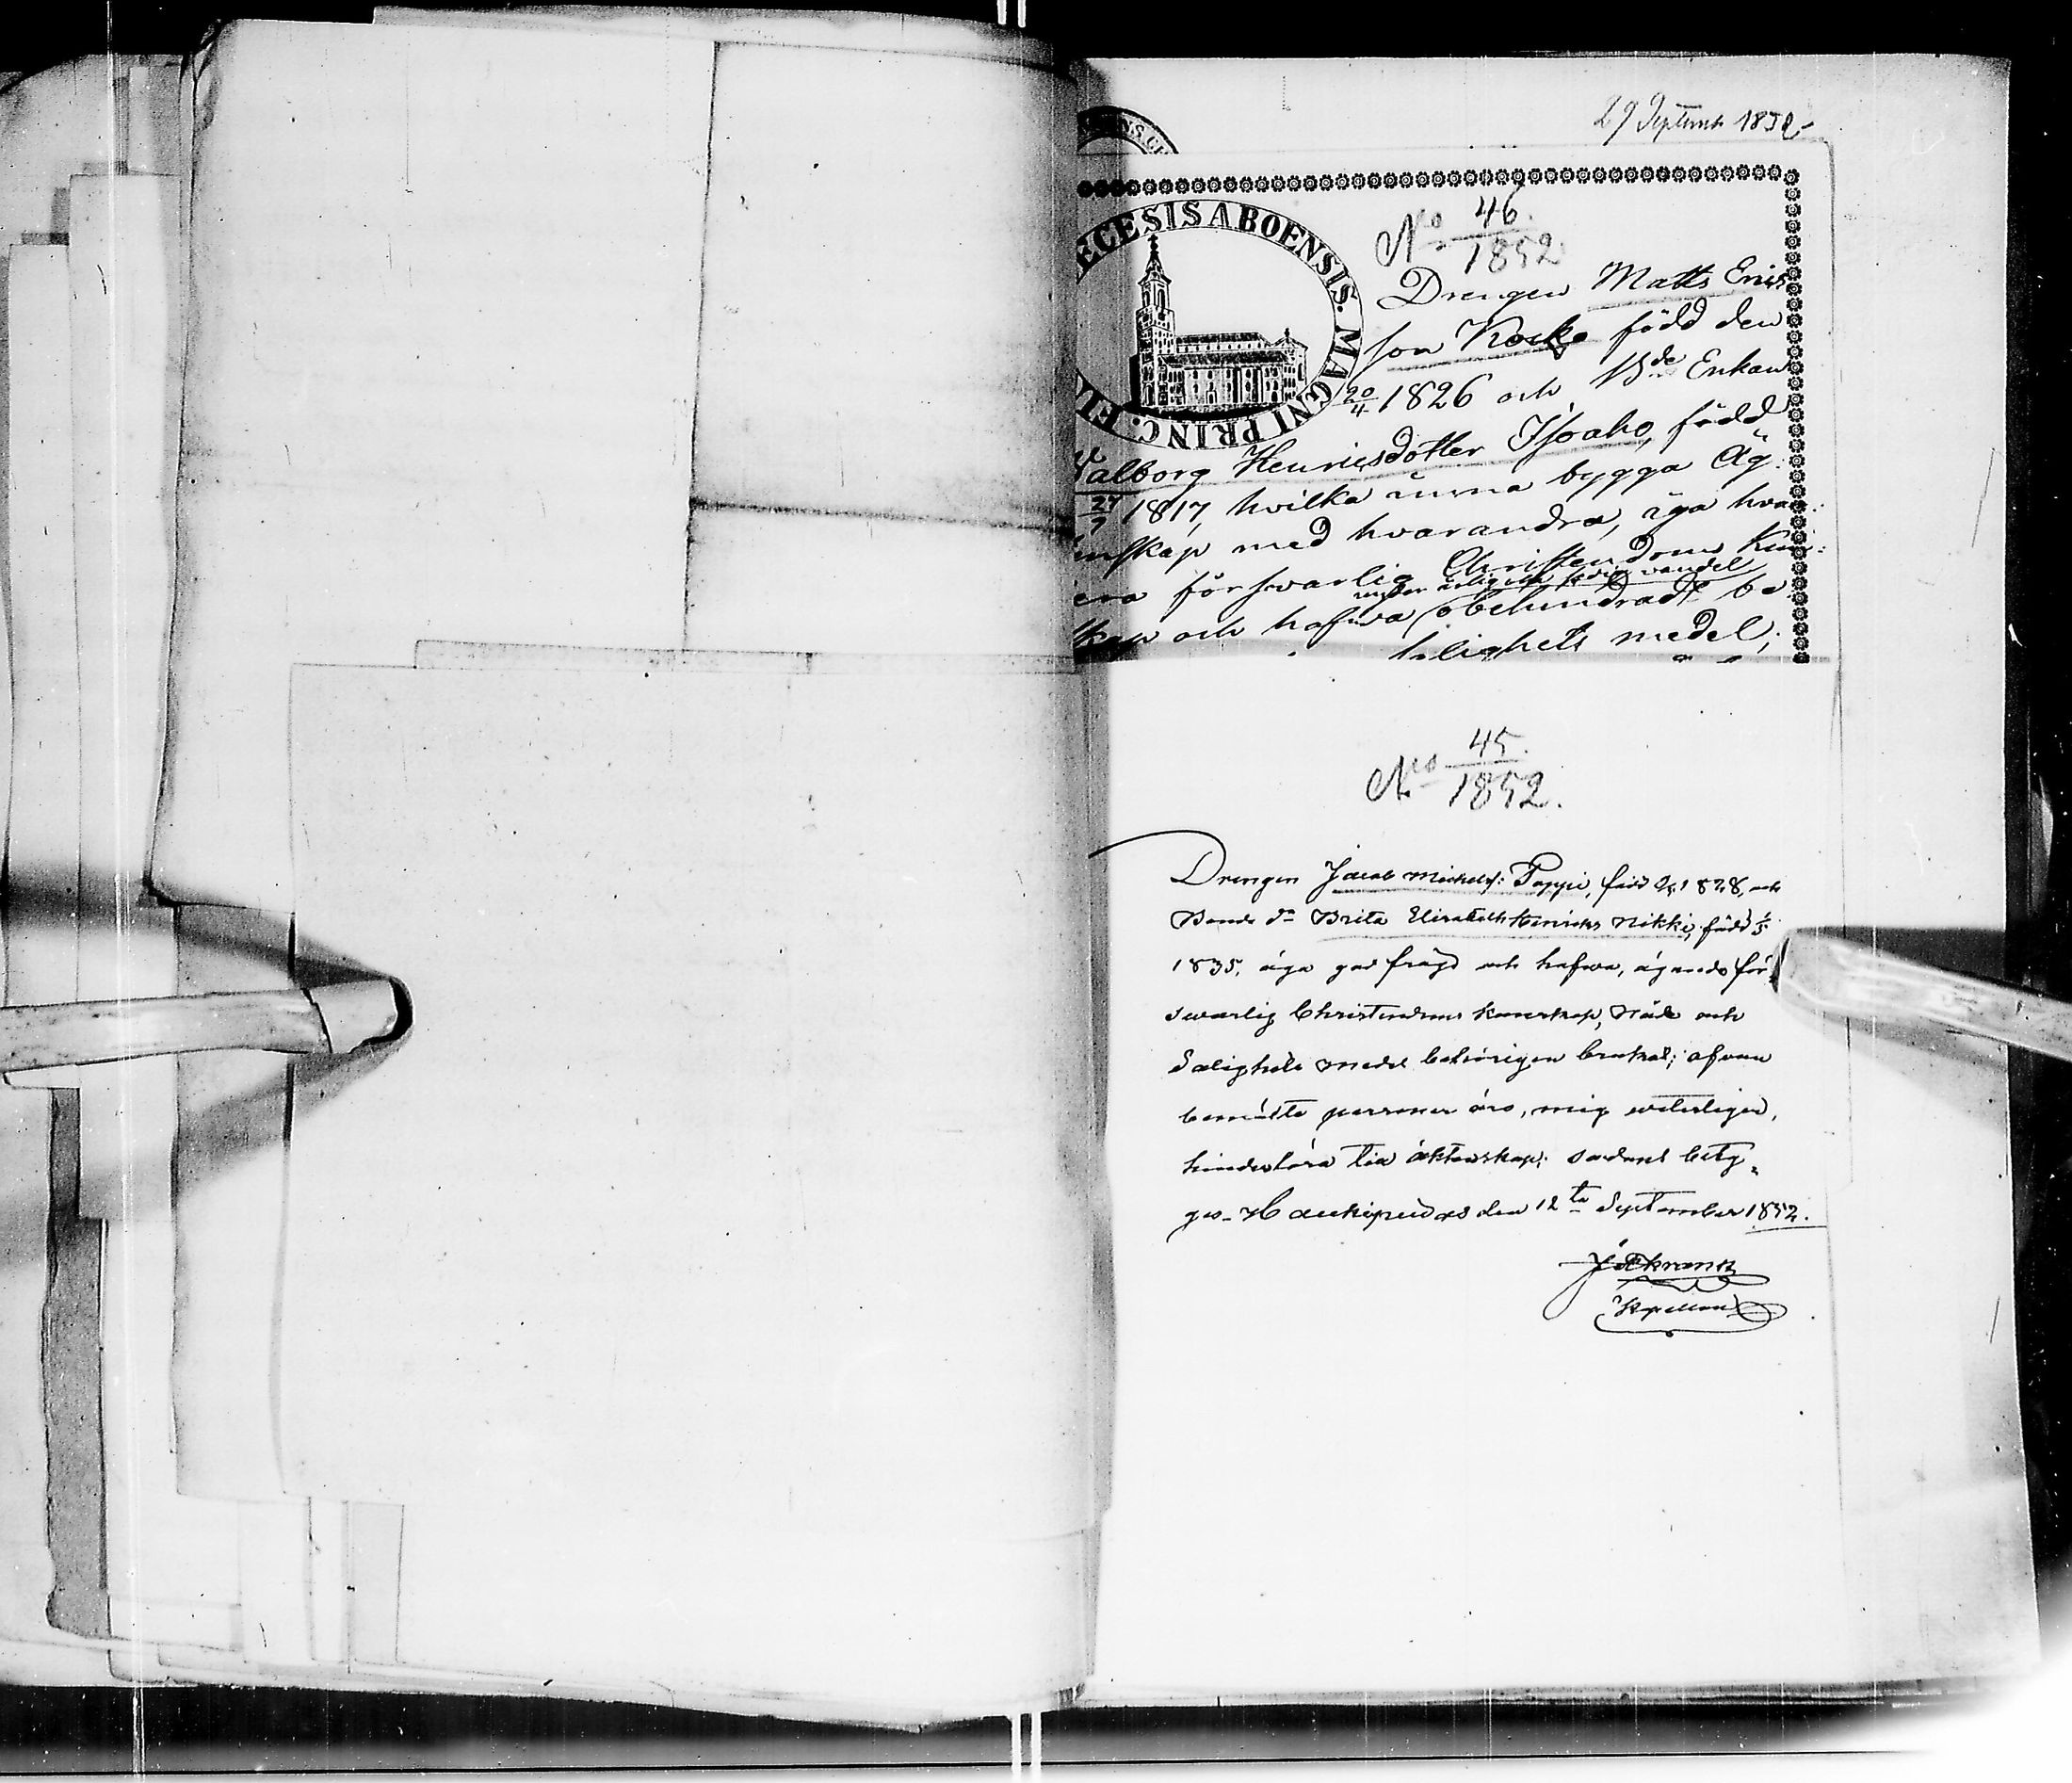 29 Septemb 1852
DIOECESIS ABOENSIS. MAGNI PRINC. FI
No 46.
1852
Drengen Matts Erics
son Koske född den
20/4 1826 och Bde Enkan
Valborg Henricsdotter Isoaho, född
27/7 1817, hvilka ämna bygga Äg-
enskap med hvarandra, äga hva-
era försvarlig Christendoms Kun-
under ärlig wandel
skap och hafwa obehindradt be
salighets medel;
No 45.
1852.
Drengen Jacob Michelss: Pappi, född 1828, och
Bonde dr Brita Elisabeth Henriks Nikki, född 1/5
1835, äga god frägd och hafwa, ägande för-
swarlig Christendoms kunskap, Nåde och
Salighets medel behörigen brukat; ofvan
bemälte personer äro, mig veterligen,
hinderlösa till äktenskap; sådant bety-
ges. Haukipudas den 12te September 1852.
J Åkrantz
Kapellan